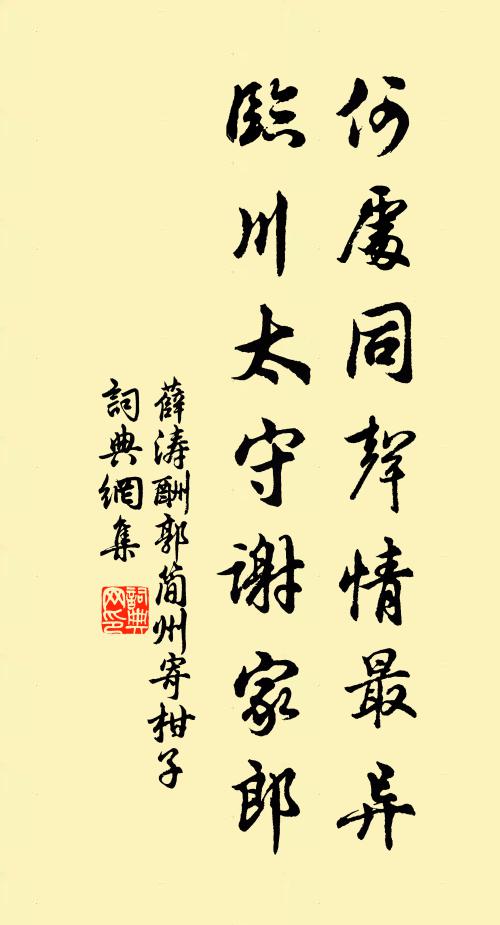 何處同聲情最异
臨川太守謝家郎
薛涛酬郭简州寄柑子
詞典網集
詞典
网印